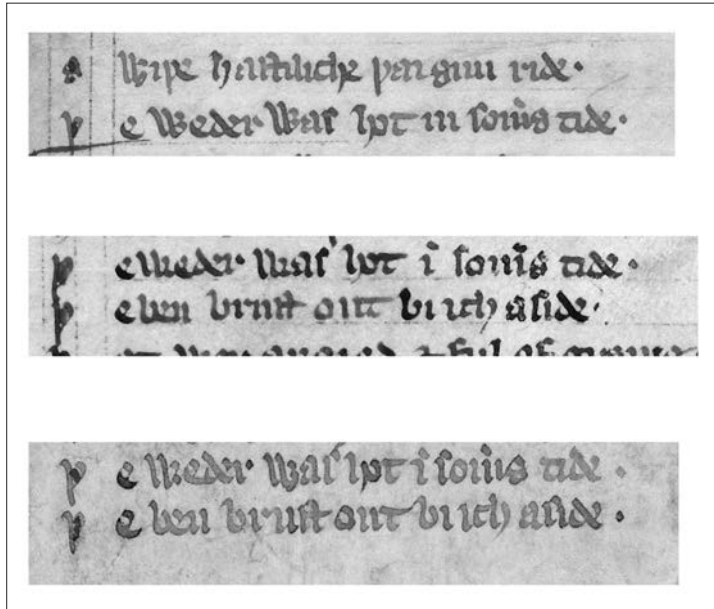 S wiþe hastiliche þai gun ride·
Þ e weder was hot in som̄s tide·
Þ e weder was hot ī som̄s tide·
Þ e ben brust out bi ich aside·
Þ e weder was hot ī som̄s tide·
Þ e ben brust out bi ich aside·